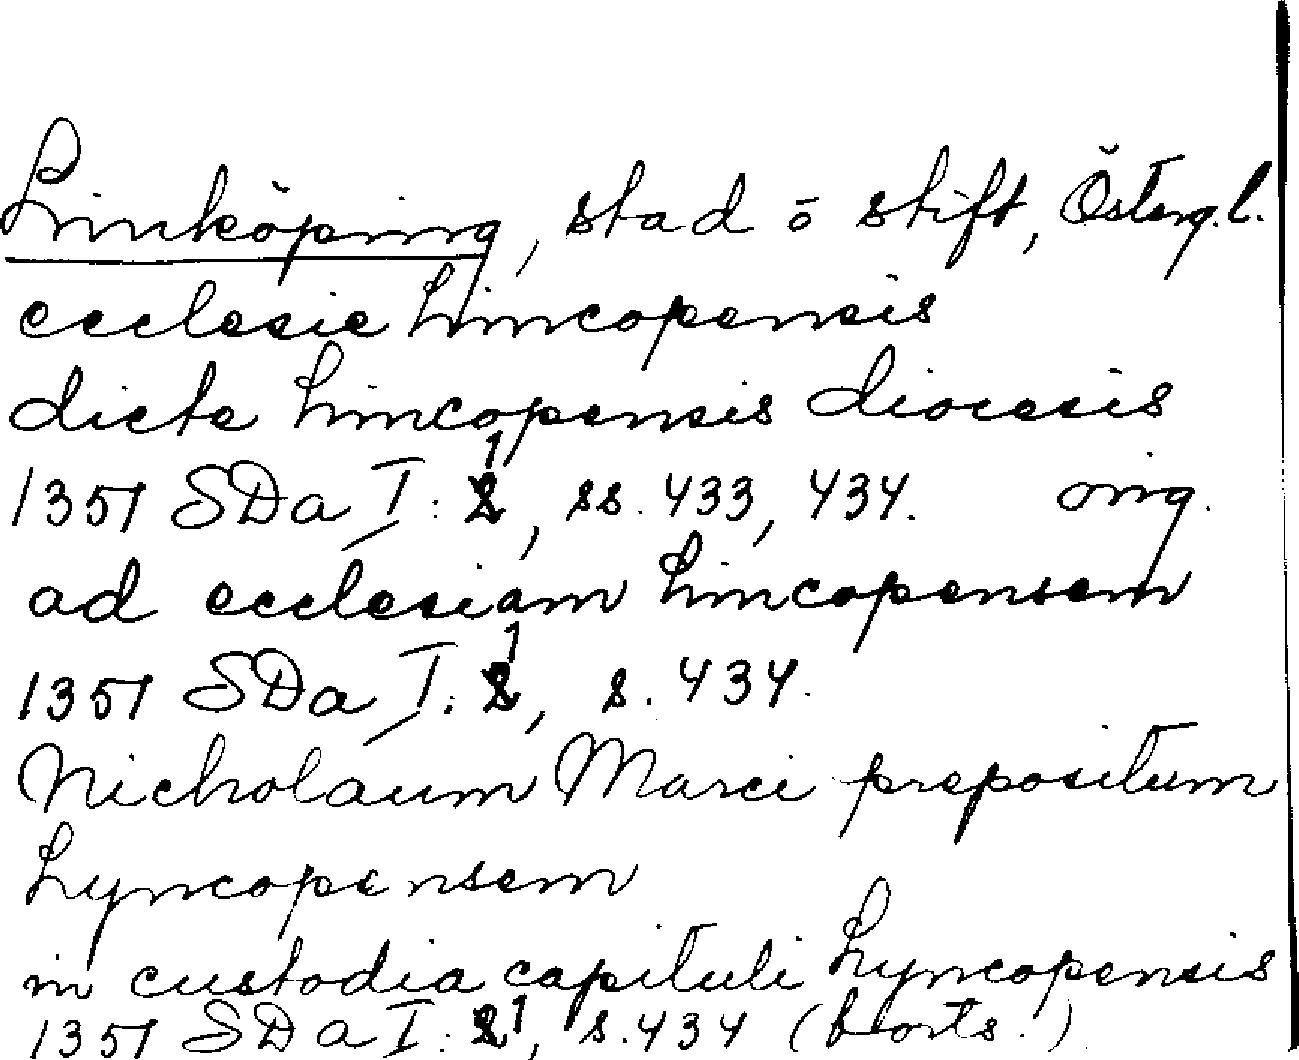 Linköping, stad o stift, Österg.l.
ecclesie Lincopensis
dicte Lincopensis diocesis
1351 SDa I: 1, ss. 433, 434. orig.
ad ecclesiam Lincopensem
1351 SDa I: 1, s. 434.
Nicholaum Marci prepositum
Lyncopensem
in custodia capituli Lyncopensis
1351 SDa I: 1, s. 434 (forts.)